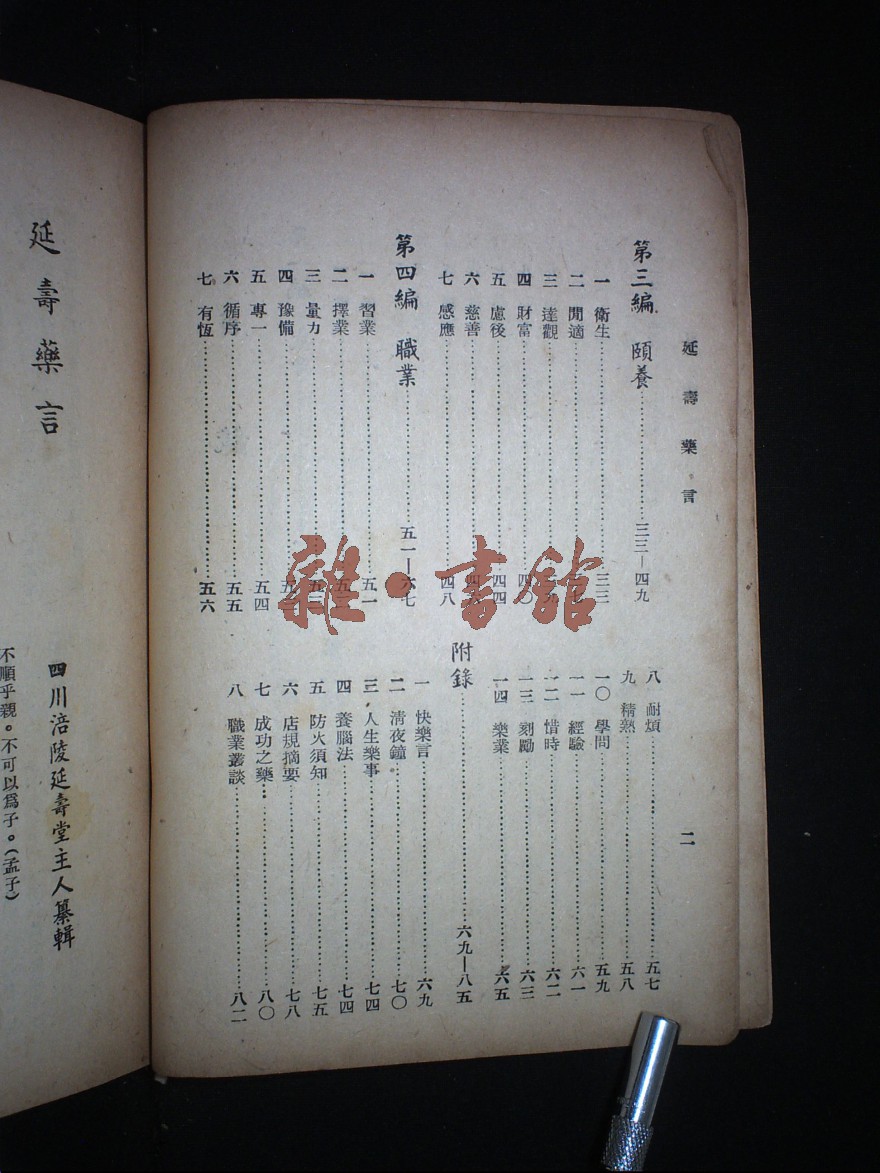 延壽藥言
二
第三編 頤養……三三—四九
一 衛生……三三
二 閒適……七
三 達觀……
四 財富……四〇
五 慮後……四四
六 慈善……四
七 感應……四八
第四編 職業……五一—六七
一 習業……五一
二 擇業……五
三 量力……五
四 豫備……五
五 專一……五四
六 循序……五五
七 有恆……五六
八 耐煩……五七
九 精熟……五八
一〇 學問……五九
一一 經驗……六一
一二 惜時……六二
一三 刻勵……六三
一四 樂業……六五
附錄……六九—八五
一 快樂言……六九
二 清夜鐘……七〇
三 人生樂事……七四
四 養腦法……七四
五 防火須知……七五
六 店規摘要……七八
七 成功之藥……八〇
八 職業叢談……八二
延壽藥言
四川涪陵延壽堂主人纂輯
不順乎親。不可以爲子。(孟子)
雜·書館